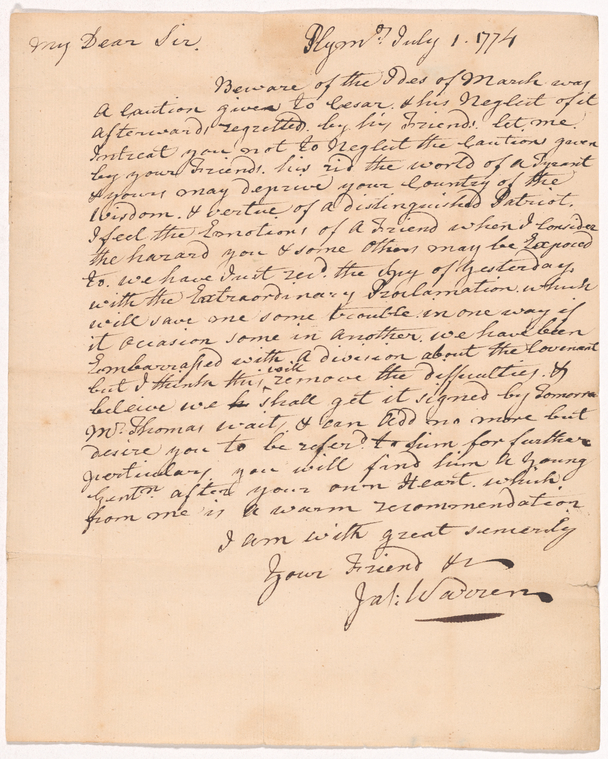 My Dear Sir. Plymo. July 1. 1774
Beware of the Ides of March was
a Caution given to Cesar, & his Neglect of it
afterwards regretted by his Friends. let me
Intreat you not to Neglect the Caution given
by your Friends. his rid the world of a Tyrant
& yours may deprive your Country of the
wisdom, & vertue of a distinguished Patriot.
I feel the Emotions of a Friend when I consider
the hazard you & some others may be Exposed
to. we have Just recd. the of Yesterday
with the Extraordinary Proclamation which
will save me some trouble in one way if
it occasion some in another. we have been
Embarrassed with a division about the Covenant
but I think this will remove the difficulties, &
beleive we shall get it signed by Tomorrow
Mr. Thomas waits, & can add no more but
desire you to be referd. to him for further
particulars, you will find him a Young
Gentn. after your own Heart. which
from me is a warm recommendation
I am with great sincerity
Your Friend &c
Jas: Warren